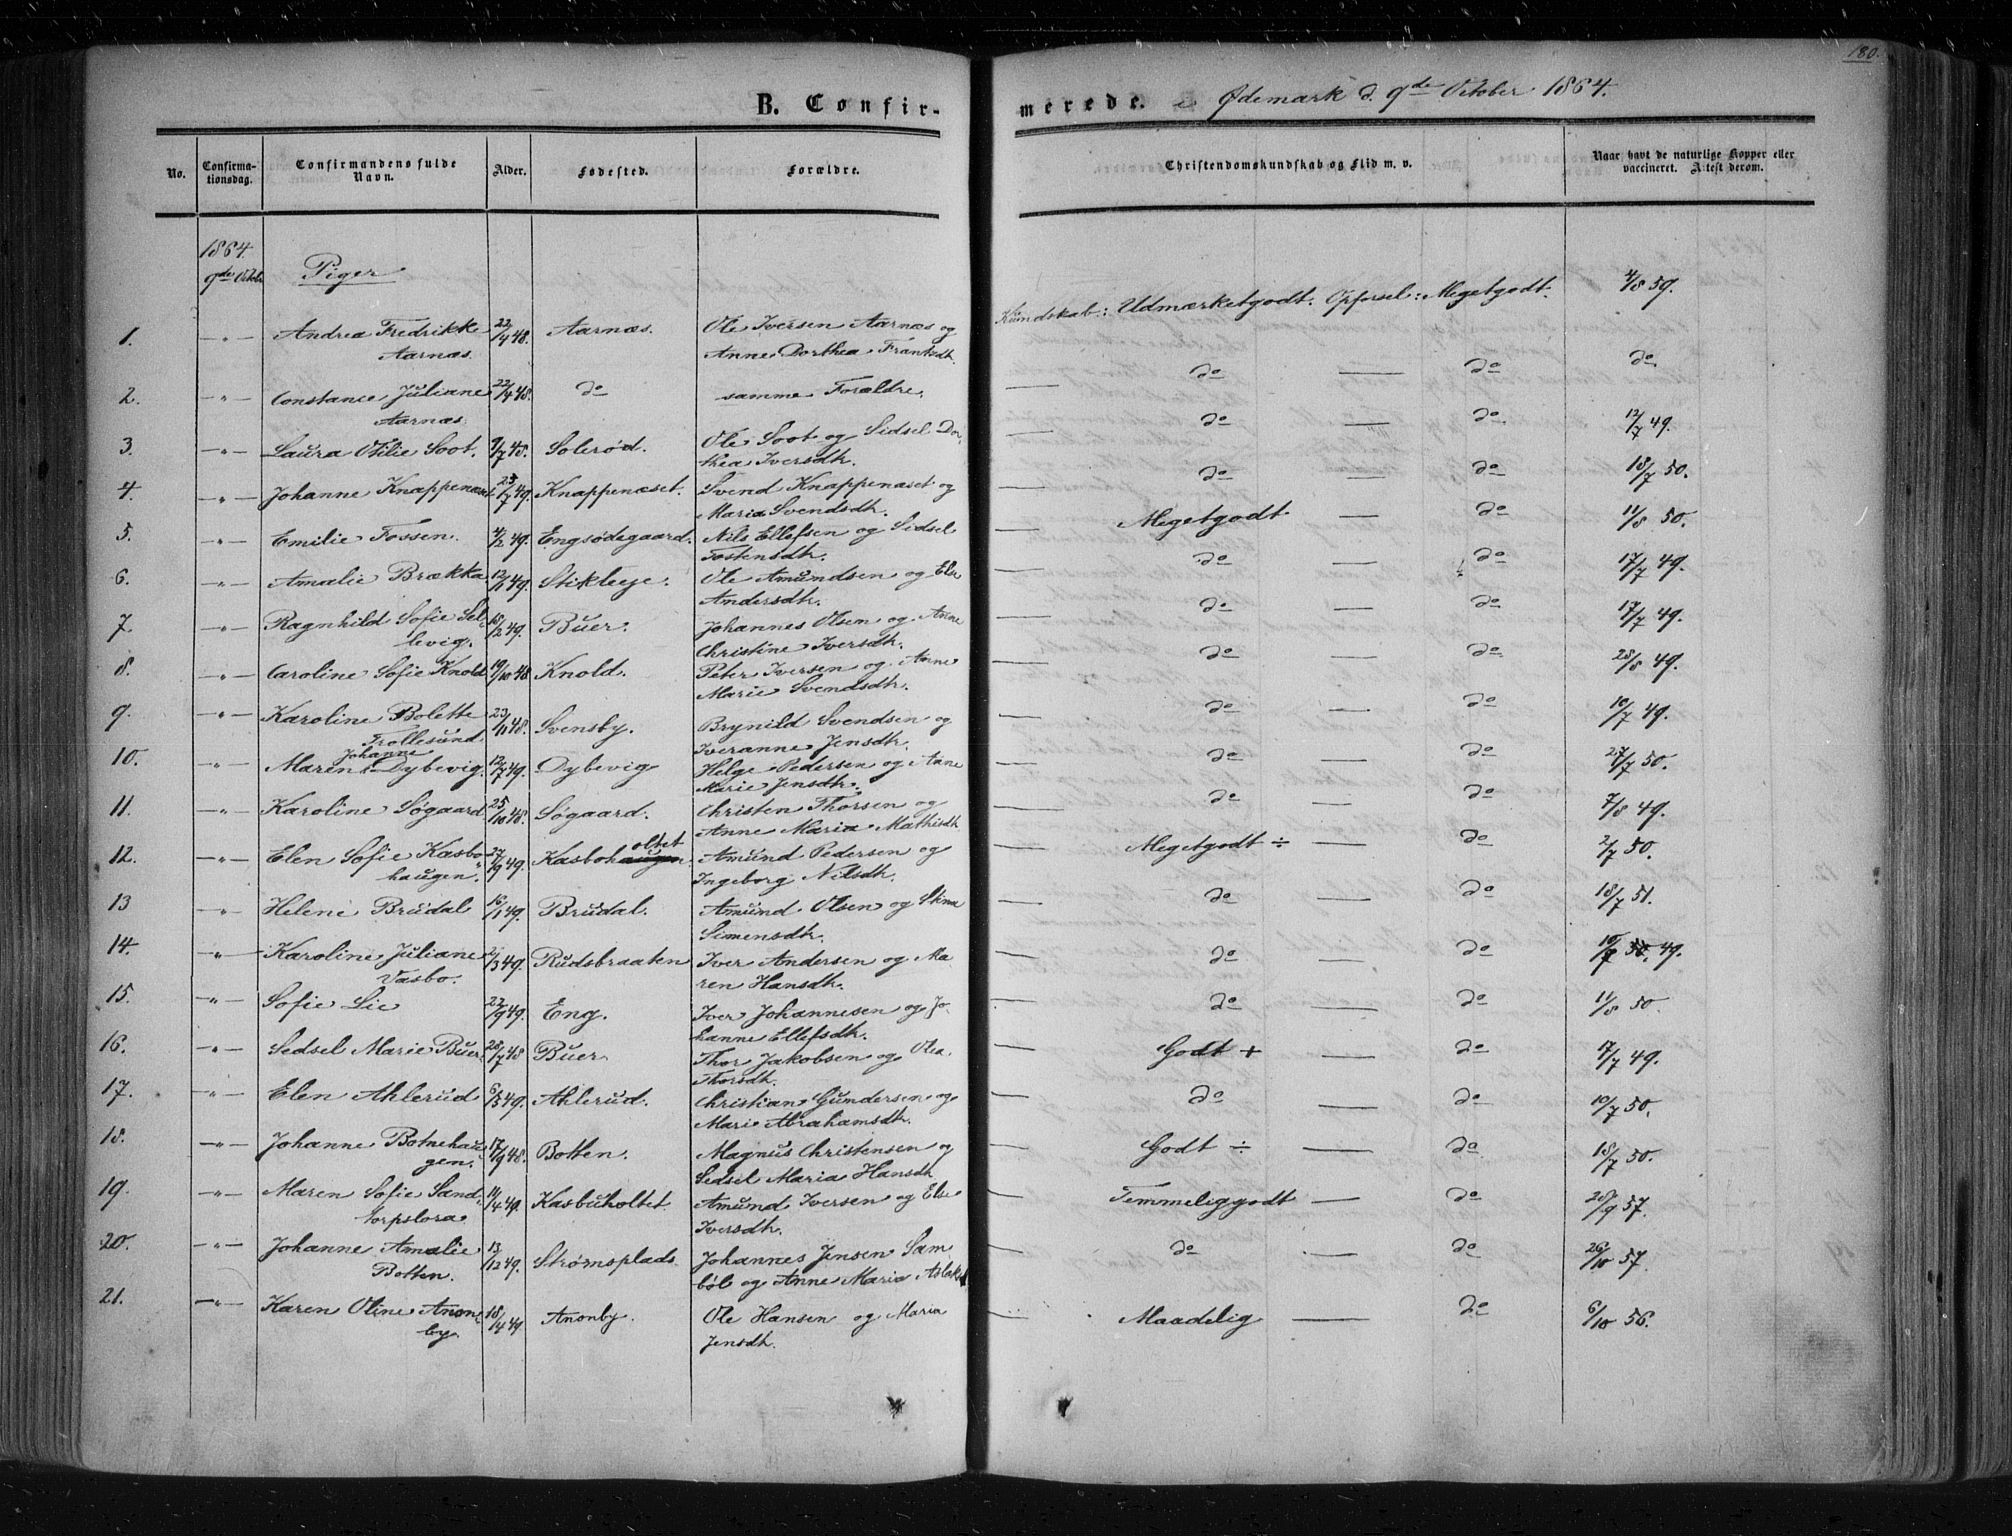 180.
B. Confirmerede. i Ødemark d. 9de October 1864.
No. Confirmationsdag. Confirmandens fulde Navn. Alder. Fødested. Forældre. Christendomskundskab og Flid m. v. Naar havt de naturlige Kopper eller vaccineret. Attest derom.
1864
9de Octobr Piger
1. -"- Andrea Fredrikke 22/4 48. Aarnæs. Ole Iversen Aarnæs og Kundskab: Udmærketgodt. Opførsel: Megetgodt. 4/8 59.
Aarnæs. Anne Dorthea Frantsdt.
2. -"- Constance Juliane 22/4 48. do samme Forældre. — do — do do
Aarnæs.
3. -"- Laura Otilie Soot. 9/7 48. Solerød. Ole Soot og Sidsel Dor- — do — do 12/7 49.
thea Iversdtr.
4. -"- Johanne Knappenæset 23/7 49. Knappenæset. Svend Knappenæset og — do — do 18/7 50.
Maria Svendsdtr.
5. -"- Emilie Fossen. 4/2 49. Engsødegaard. Nils Ellefsen og Sidsel — Megetgodt — do 11/8 50.
Tostensdtr.
6. -"- Amalie Brække 12/1 49. Stikleeje. Ole Amundsen og Else — do — do 17/7 49.
Andersdtr.
7. -"- Ragnhild Sofie Sel- 15/2 49. Buer. Johannes Olsen og Anne — do — do 17/7 49.
bevig. Christine Iversdtr.
8. -"- Caroline Sofie Knold 19/10 48 Knold. Peter Iversen og Anne — do — do 28/8 49.
Marie Svendsdtr.
9. -"- Karoline Bolette 23/11 48. Svensby. Brynild Svendsen og — do — do 10/7 49.
Trollesund. Iveranne Jensdtr.
10. -"- Maren Johanne Dybevig. 12/7 49. Dybevig Helge Pedersen og Anne — do — do 27/7 50.
Marie Jensdtr.
11. -"- Karoline Søgaard 25/10 48. Søgaard. Christen Thorsen og — do — do 7/8 49.
Anne Maria Mathisdtr
12. -"- Elen Sofie Kasbo- 27/9 49. Kasbohaugen oltet Amund Pedersen og — Megetgodt ÷ — do 2/7 50.
haugen. Ingeborg Nilsdtr.
13 -"- Helene Brudal 16/1 49. Brudal. Amund Olsen og Stina — do — do 18/7 51.
Simensdtr.
14. -"- Karoline Juliane 2/3 49. Rudsbraaten Iver Andersen og Ma — do — do 10/7 49.
Vasbo. ren Hansdtr.
15. -"- Sofie Lie 22/9 49. Eng. Iver Johannesen og Jo- — do — do 11/8 50.
hanne Ellefsdtr.
16. -"- Sedsel Marie Buer. 28/7 48 Buer. Thor Jakobsen og Olea — Godt + — do 17/7 49.
Thorsdtr.
17. -"- Elen Ahlerud 6/3 49. Ahlerud. Christian Gundersen og — do — do 10/7 50.
Mari Abrahamsdtr.
18. -"- Johanne Botnehau- 17/9 48. Botten. Magnus Christensen og — Godt ÷ — do 18/7 50.
gen. Sedsel Maria Hansdtr
19. -"- Maren Sofie Sand 14/4 49. Kasbuholtet Amund Iversen og Else — Temmeliggodt — do 28/9 57.
torpslora Iversdtr.
20. -"- Johanne Amalie 12/12 49. Strømsplads. Johannes Jensen Sam — do — do 26/10 57.
Botten. bøl og Anne Maria Aslaksd
21. -"- Karen Oline Anone- 18/4 49 Anonby. Ole Hansen og Maria Maadelig — do 6/10 56.
by. Jensdtr.